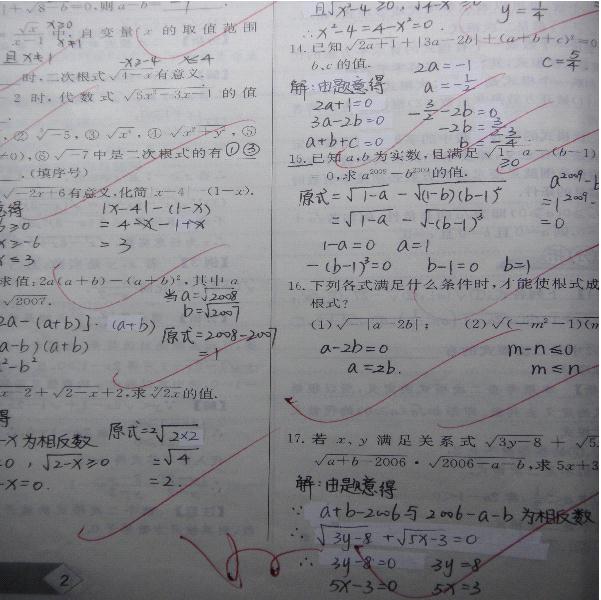 1+√8-b=0,则a-b= -1 .
√x/x-1 中,自变量 x 的取值范围
x≥0
x≠1
且 x≠1
x≥-4 x≤4
时,二次根式√4-x有意义.
2 时,代数式√5x²-3x-1 的值
② ∛-5, ③ √x², ④ √x²+y², ⑤
≠0),⑥√-7中是二次根式的有①③
.(填序号)
√-2x+6有意义,化简|x-4|-(1-x).
|x-4|-(1-x)
b≥0 =4-x-1+x
x≥-6 =3
x≤3
求值:2a(a+b)-(a+b)²,其中 a
√2007.
当a=√2008
b=√2007
2a-(a+b)]·(a+b)
原式=2008-2007
a-b)(a+b) =1
²-b²
x-2+√2-x+2,求 ʸ√2x的值.
得
-x为相反数 原式=²√2×2
0,√2-x≥0 =√4
-x=0. =2.
2
且√x²-4≥0,√4-x≥0 y=1/4
∴x²-4=4-x²=0
14.已知√2a+1+|3a-2b|+(a+b+c)²=0
b,c的值.
2a=-1 c=5/4
解:由题意得 a=-1/2
2a+1=0
3a-2b=0 -3/2-2b=0
a+b+c=0 -2b=3/2
b=-3/4
15.已知 a,b 为实数,且满足√1-a-(b-1)
≥0
0,求 a²⁰⁰⁹-b²⁰⁰⁹的值.
原式=√1-a-√(1-b)(b-1)² a²⁰⁰⁹-b
=√1-a-√-(b-1)³ =1²⁰⁰⁹-
=0
1-a=0 a=1
-(b-1)³=0 b-1=0 b=1
16.下列各式满足什么条件时,才能使根式成
根式?
(1)√-|a-2b|; (2)√(-m²-1)(m
a-2b=0 m-n≤0
a=2b. m≤n
17.若 x, y 满足关系式√3y-8+√5
√a+b-2006·√2006-a-b,求5x+3
解:由题意得
∵ a+b-2006与2006-a-b为相反数
∴ √3y-8+√5x-3=0
∴ 3y-8=0 3y=8
5x-3=0 5x=3